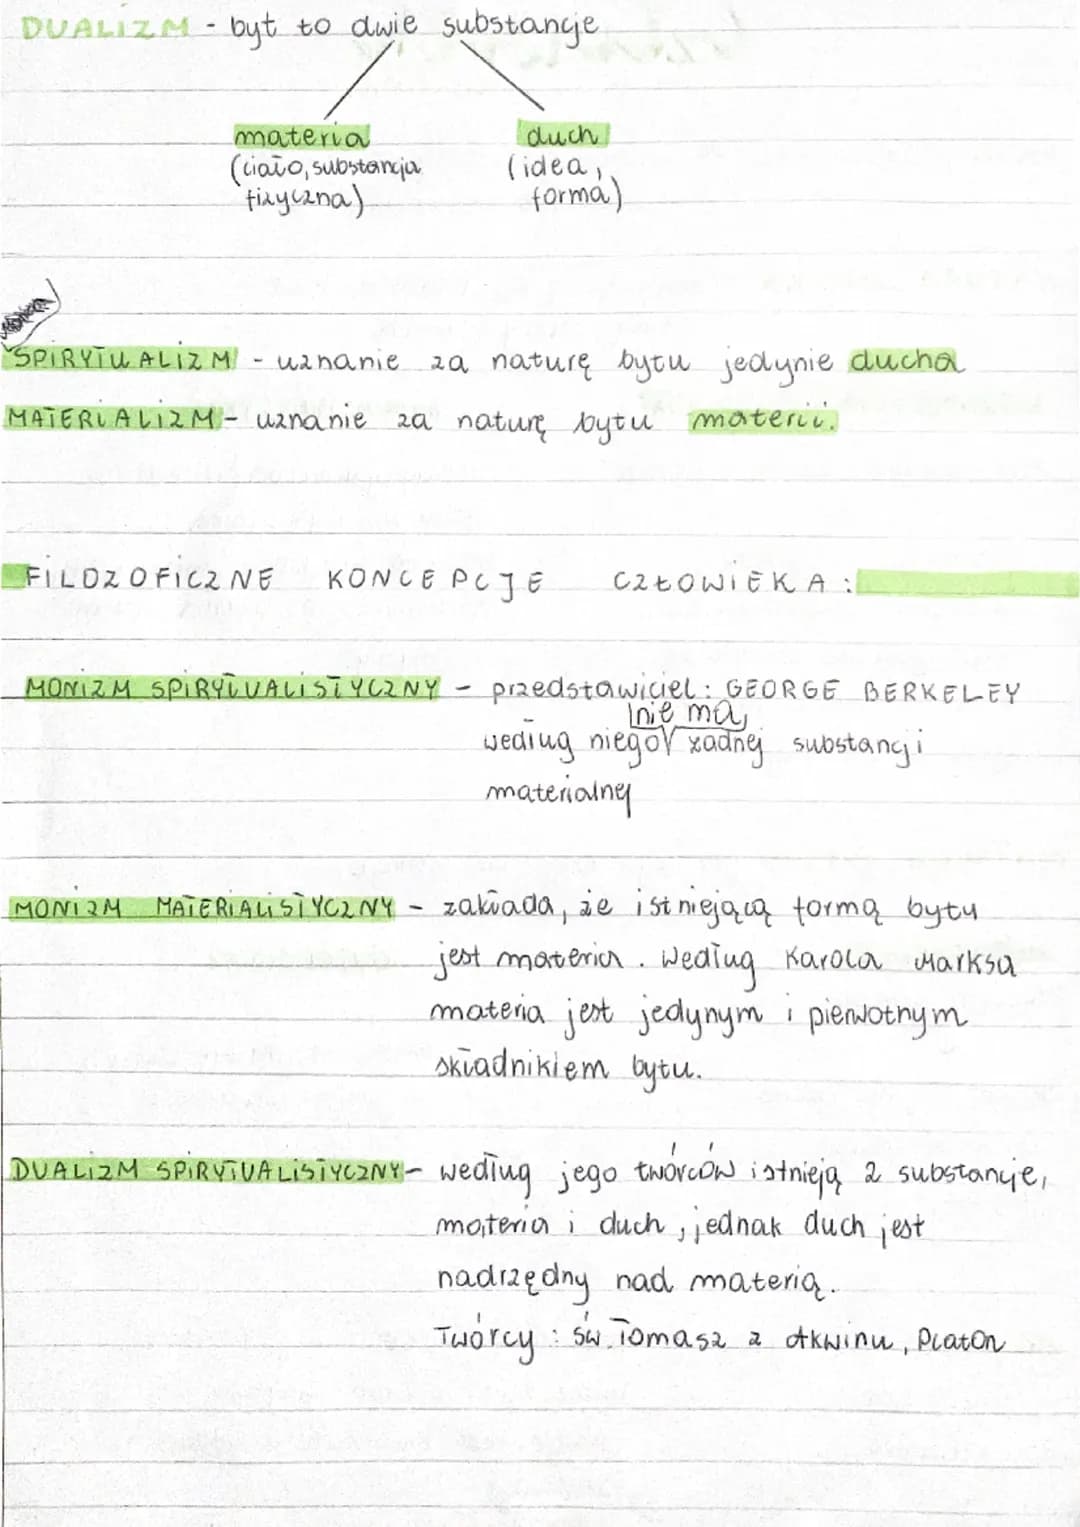 DUALIZM - byt to dwie substancje
materia duch
(ciało, substancja (idea,
fizyczna) forma)
SPIRYTUALIZM - uznanie za naturę bytu jedynie ducha
MATERIALIZM - uznanie za naturę bytu materii.
FILOZOFICZNE KONCEPCJE CZŁOWIEKA:
MONIZM SPIRYTUALISTYCZNY - przedstawiciel: GEORGE BERKELEY
nie ma
według niego żadnej substancji
materialnej
MONIZM MATERIALISTYCZNY - zakłada, że istniejącą formą bytu
jest materia. Według Karola Marksa
materia jest jedynym i pierwotnym
składnikiem bytu.
DUALIZM SPIRYTUALISTYCZNY - według jego twórców istnieją 2 substancje,
materia i duch, jednak duch jest
nadrzędny nad materią.
Twórcy: św. Tomasz z Akwinu, Platon